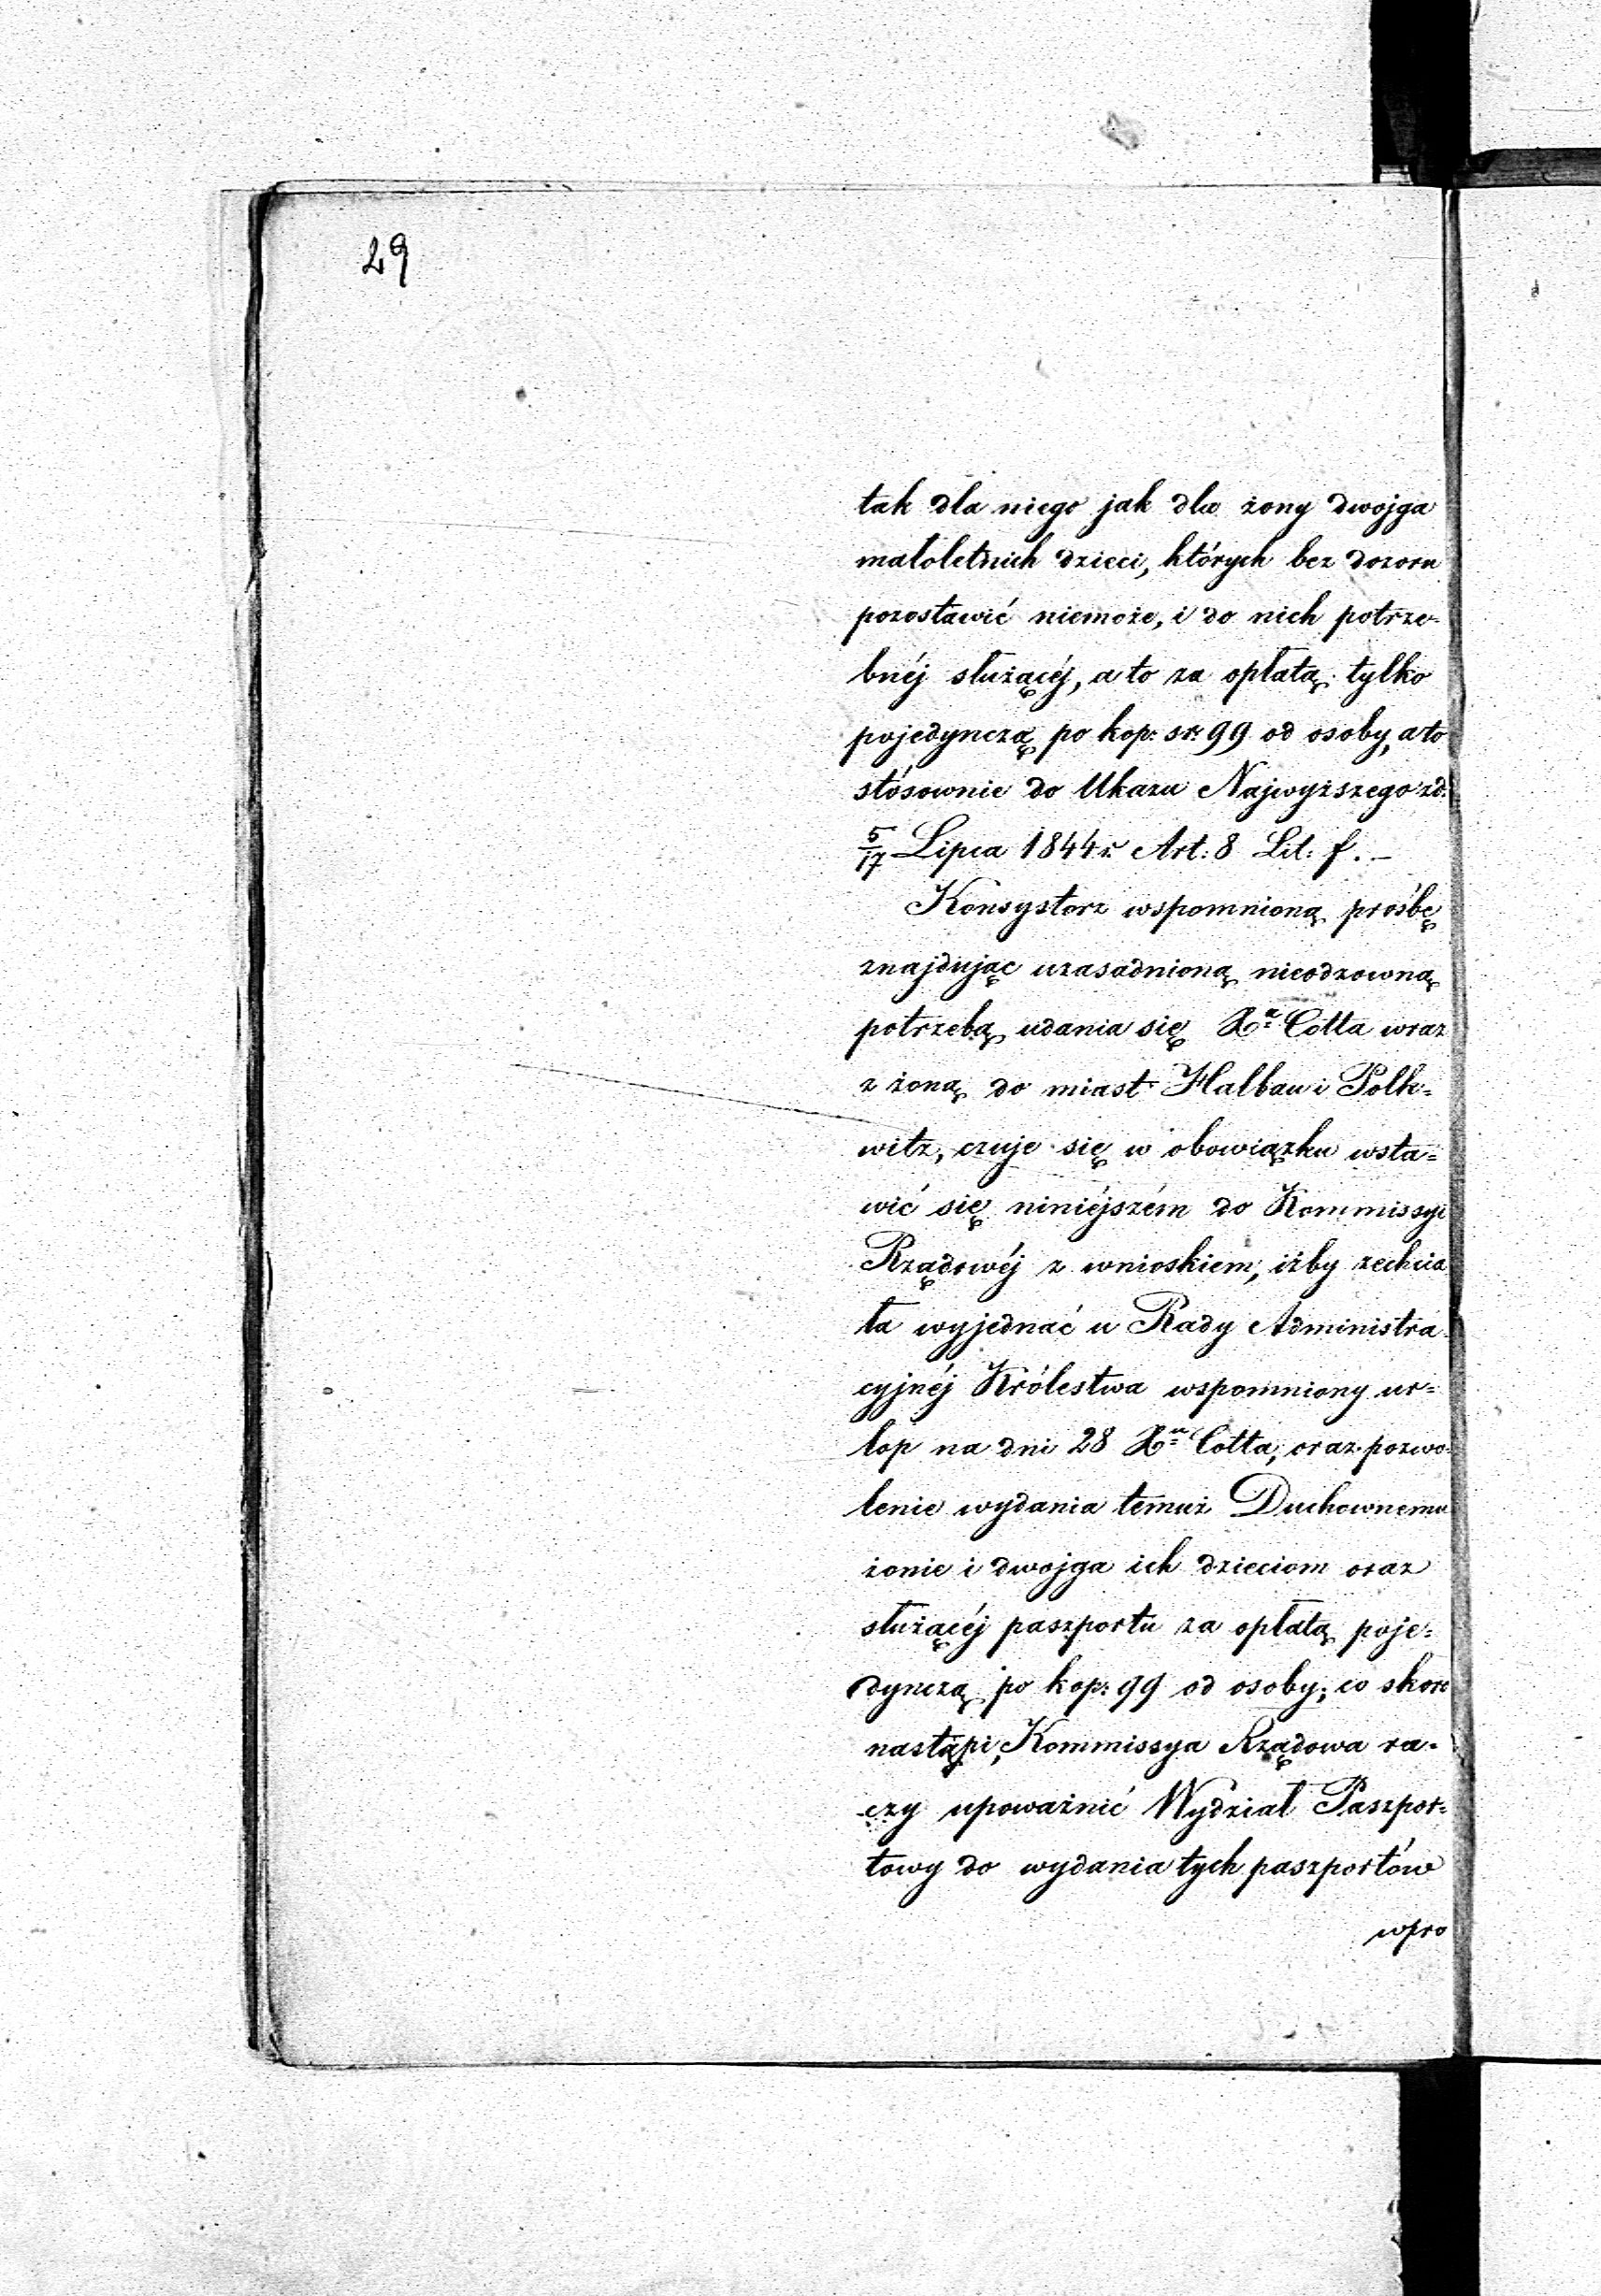 29
tak dla niego jak dla żony dwojga
małoletnich dzieci, których bez dozoru
pozostawić niemoże, i do nich potrze-
bnéj służącéj, a to za opłatą tylko
pojedynczą po kop: sr: 99 od osoby, a to
stósownie do Ukazu Najwyższego zd.
5/17 Lipca 1844 r. Art: 8 Lit: f. –
Konsystorz wspomnioną prośbę
znajdując uzasadnioną nieodzowną
potrzebą udania się Xa Cotta wraz
z żoną do miast Halbau i Polk-
witz, czuje się w obowiązku wsta=
wić się niniéjszém do Kommissyi
Rządowéj z wnioskiem, iżby zechcia
ła wyjednać u Rady Administra
cyjnéj Królestwa wspomniony ur=
lop na dni 28 Xu Cotta, oraz pozwo-
lenie wydania temuż Duchownemu
żonie i dwojga ich dzieciom oraz
służącéj paszportu za opłatą poje=
dynczą po kop: 99 od osoby; co skoro
nastąpi, Kommissya Rządowa ra-
czy upoważnić Wydział Paszpor=
towy do wydania tych paszportów
wpro